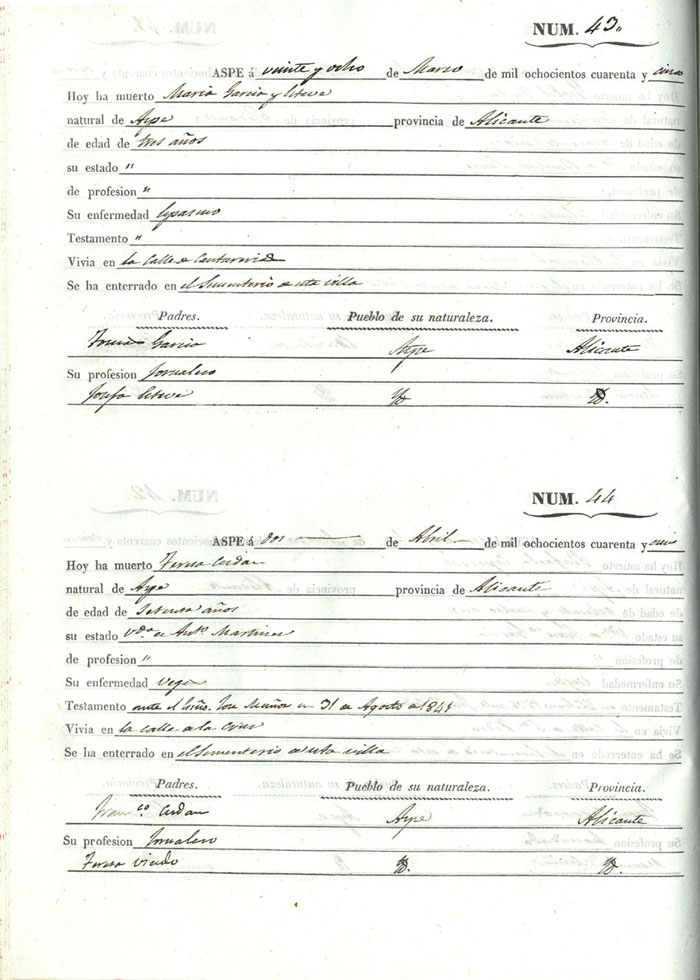 NUM. 43.
ASPE á veinte y ocho de Marzo de mil ochocientos cuarenta y
Hoy ha muerto Maria Garcia y
natural de Aspe provincia de Alicante
de edad de tres años
su estado "
de profesion "
Su enfermedad Espasmo
Testamento "
Vivia en la calle
Se ha enterrado en el Sementerio de esta villa
Padres. Pueblo de su naturaleza. Provincia.
Garcia Aspe Alicante
Su profesion Jornalero
Josefa D. D.
NUM. 44
ASPE á dos de Abril de mil ochocientos cuarenta y
Hoy ha muerto Teresa Cerdan
natural de Aspe provincia de Alicante
de edad de Setenta años
su estado Vda. de Anto. Martinez
de profesion "
Su enfermedad Vegez
Testamento ante el Jose Muñoz en 31 de Agosto de 1841
Vivia en la calle de la Cruz
Se ha enterrado en el Sementerio de esta villa
Padres. Pueblo de su naturaleza. Provincia.
Franco. Cerdan Aspe Alicante
Su profesion Jornalero
Teresa D. D.